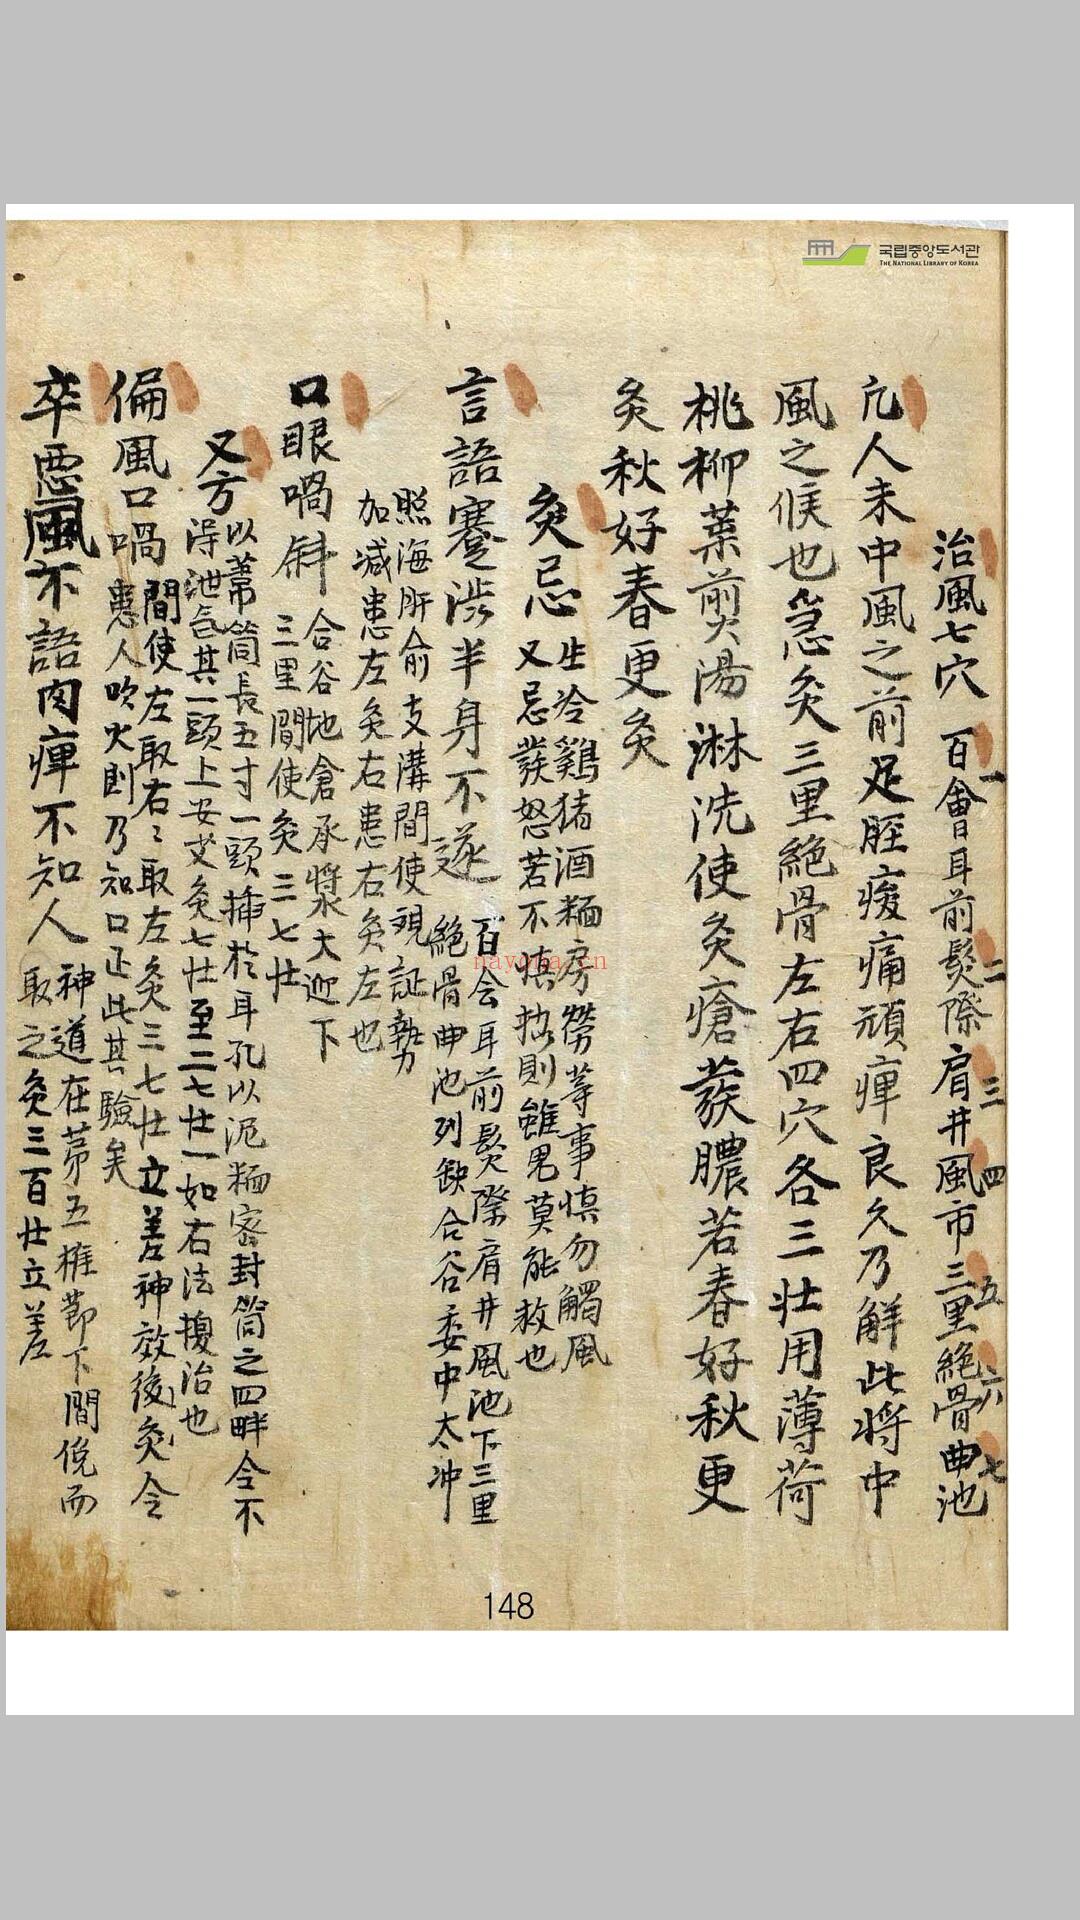 국립중앙도서관
THE NATIONAL LIBRARY OF KOREA
治風七穴 百會一耳前髮際二肩井三風市四三里五絶骨六曲池七
凡人未中風之前足脛痠痛頑痺良久乃解此將中
風之候也急灸三里絶骨左右四穴各三壯用薄荷
桃柳葉煎湯淋洗使灸瘡發膿若春好秋更
灸秋好春更灸
灸忌 生冷鷄猪酒麵房勞等事慎勿觸風
又忌發怒若不慎 則雖鬼莫能救也
言語蹇澁半身不遂 百会耳前髮際肩井風池下三里
絶骨曲池列缺合谷委中太冲
照海肝俞支溝間使視証勢
加减患左灸右患右灸左也
口眼喎斜 合谷地倉承漿大迎下
三里間使灸三七壯
又方 以葦筒長五寸一頭揷於耳孔以泥麵密封筒之四畔令不
得泄气其一頭上安艾灸七壯至二七壯一如右法擾治也
偏風口喎 間使左取右〻取左灸三七壯立差神效後灸令
患人吹火則乃知口正此其驗矣
卒惡風不語肉痺不知人 神道在第五椎節下間俛而
取之灸三百壯立差
nayona.cn
148